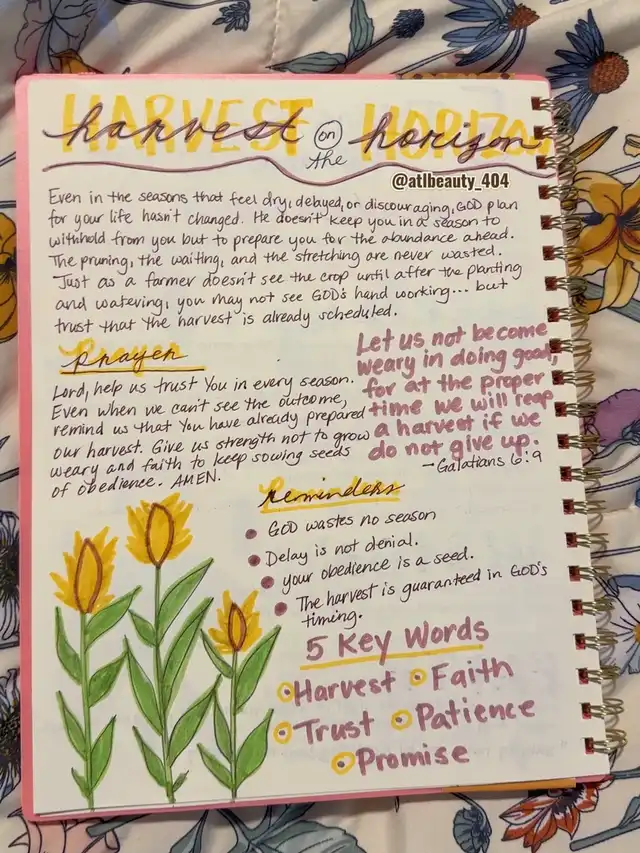 HARVEST HORIZON
harvest on the horizon
@atlbeauty_404
Even in the seasons that feel dry, delayed, or discouraging, GOD plan
for your life hasn't changed. He doesn't keep you in a season to
withhold from you but to prepare you for the abundance ahead.
The pruning, the waiting, and the stretching are never wasted.
Just as a farmer doesn't see the crop until after the planting
and watering, you may not see GOD's hand working... but
trust that the harvest is already scheduled.
Prayer
Lord, help us trust You in every season.
Even when we can't see the outcome,
remind us that You have already prepared
our harvest. Give us strength not to grow
weary and faith to keep sowing seeds
of obedience. AMEN.
Let us not become
weary in doing good,
for at the proper
time we will reap
a harvest if we
do not give up.
-Galatians 6:9
reminders
GOD wastes no season
Delay is not denial.
your obedience is a seed.
The harvest is guaranteed in GOD's
timing.
5 Key Words
Harvest Faith
Trust Patience
Promise